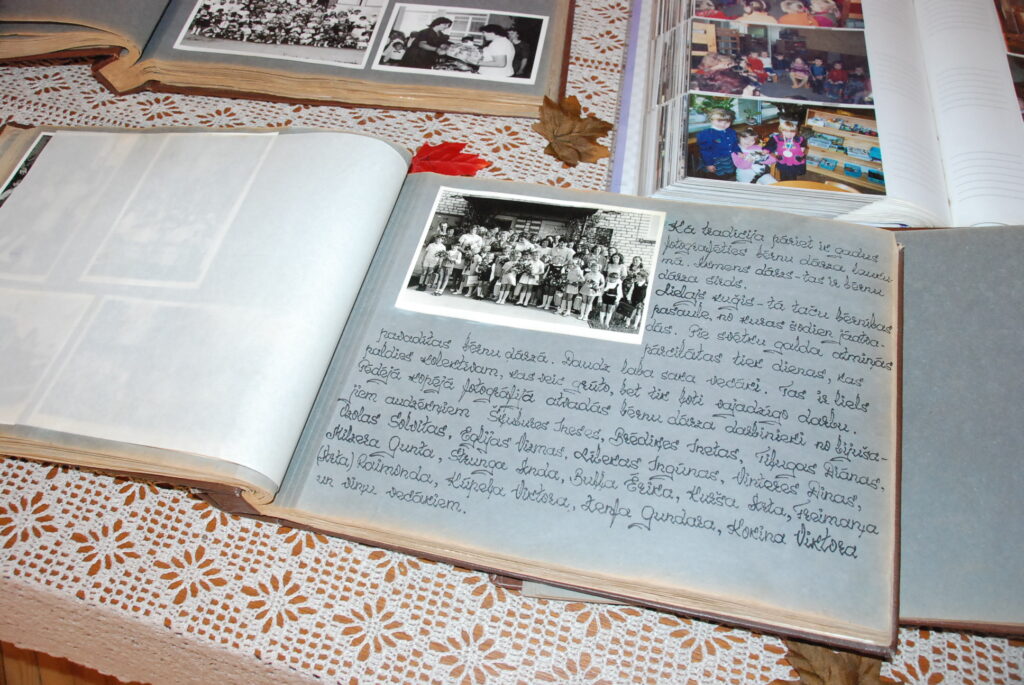 Kā tradīcija pāriet ik gadus
fotografēties bērnu dārza laukumā.
Akmens dārzs - tas ir bērnu
dārza sirds.
Lielajs kuģis - tā taču bērnības
pasaule, no kuras šodien jāatva-
dās. Pie svētku galda atmiņās
pārcilātas tiek dienas, kas
pavadītas bērnu dārzā. Daudz laba saka vecāki. Tas ir liels
paldies kolektīvam, kas veic grūto, bet tik ļoti vajadzīgo darbu.
Pēdējā kopējā fotogrāfijā atvadās bērnu dārza darbinieki no bijuša-
jiem audzēkņiem Šķubures Ineses, Brēdiķes Inetas, Tiļugas Diānas,
Ozolas Solvitas, Eglijas Virmas, Ingūnas, Vinteres Dinas,
Gunta, Strunga Anda, Bulla Ērika, Iveta, Freimaņa
Raimonda, Viktora, Gundara, Korina Viktora
un viņu vecākiem.